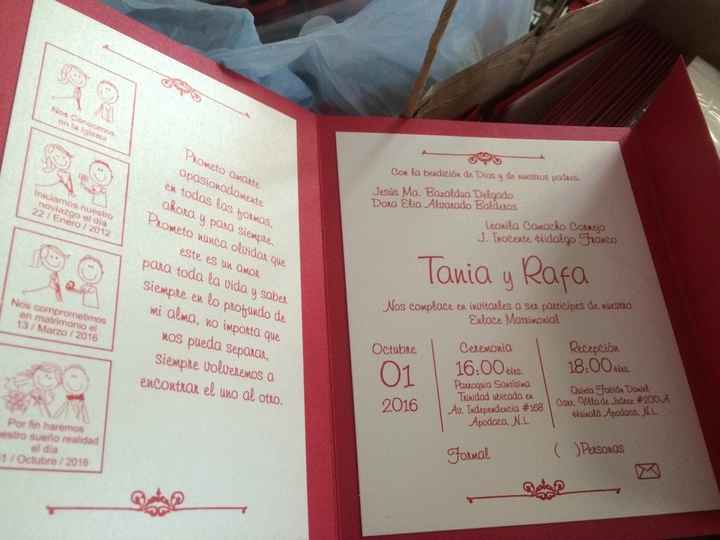 Nos Conocimos
en la Iglesia
Iniciamos nuestro
noviazgo el día
22 / Enero / 2012
Nos comprometimos
en matrimonio el
13 / Marzo / 2016
Por fin haremos
estro sueño realidad
el día
1 / Octubre / 2016
Prometo amarte
apasionadamente
en todas las formas,
ahora y para siempre.
Prometo nunca olvidar que
este es un amor
para toda la vida y saber
siempre en lo profundo de
mi alma, no importa que
nos pueda separar,
siempre volveremos a
encontrar el uno al otro.
Con la bendición de Dios y de nuestros padres.
Jesús Ma. Basaldua Delgado
Dora Elia Alvarado Balderas
Leonila Camacho Cornejo
J. Inocente Hidalgo Franco
Tania y Rafa
Nos complace en invitarles a ser partícipes de nuestro
Enlace Matrimonial
Octubre
01
2016
Ceremonia
16:00 hrs.
Parroquia Santísima
Trinidad ubicada en
Av. Independencia #168
Apodaca, N.L.
Recepción
18:00 hrs.
Quinta Fabián Daniel
Carr. Villa de Juárez #200-A
Apodaca, N.L.
Formal
( ) Personas